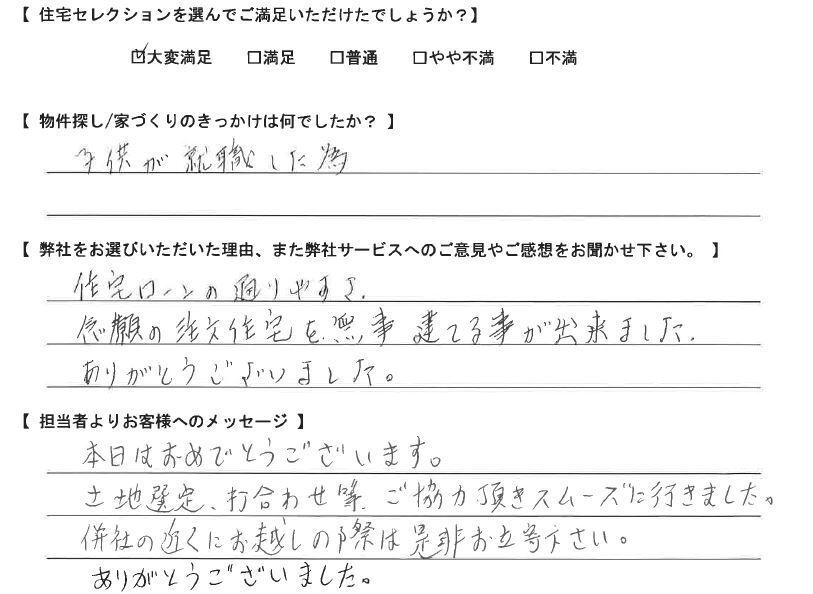 【 住宅セレクションを選んでご満足いただけたでしょうか？】
☑大変満足 □満足 □普通 □やや不満 □不満
【 物件探し/家づくりのきっかけは何でしたか？ 】
子供が就職した為
【 弊社をお選びいただいた理由、また弊社サービスへのご意見やご感想をお聞かせ下さい。 】
住宅ローンの通りやすさ.
念願の注文住宅を無事建てる事が出来ました.
ありがとうございました。
【 担当者よりお客様へのメッセージ 】
本日はおめでとうございます。
土地選定、打合わせ等、ご協力頂きスムーズに行きました。
併社の近くにお越しの際は是非お立寄下さい。
ありがとうございました。